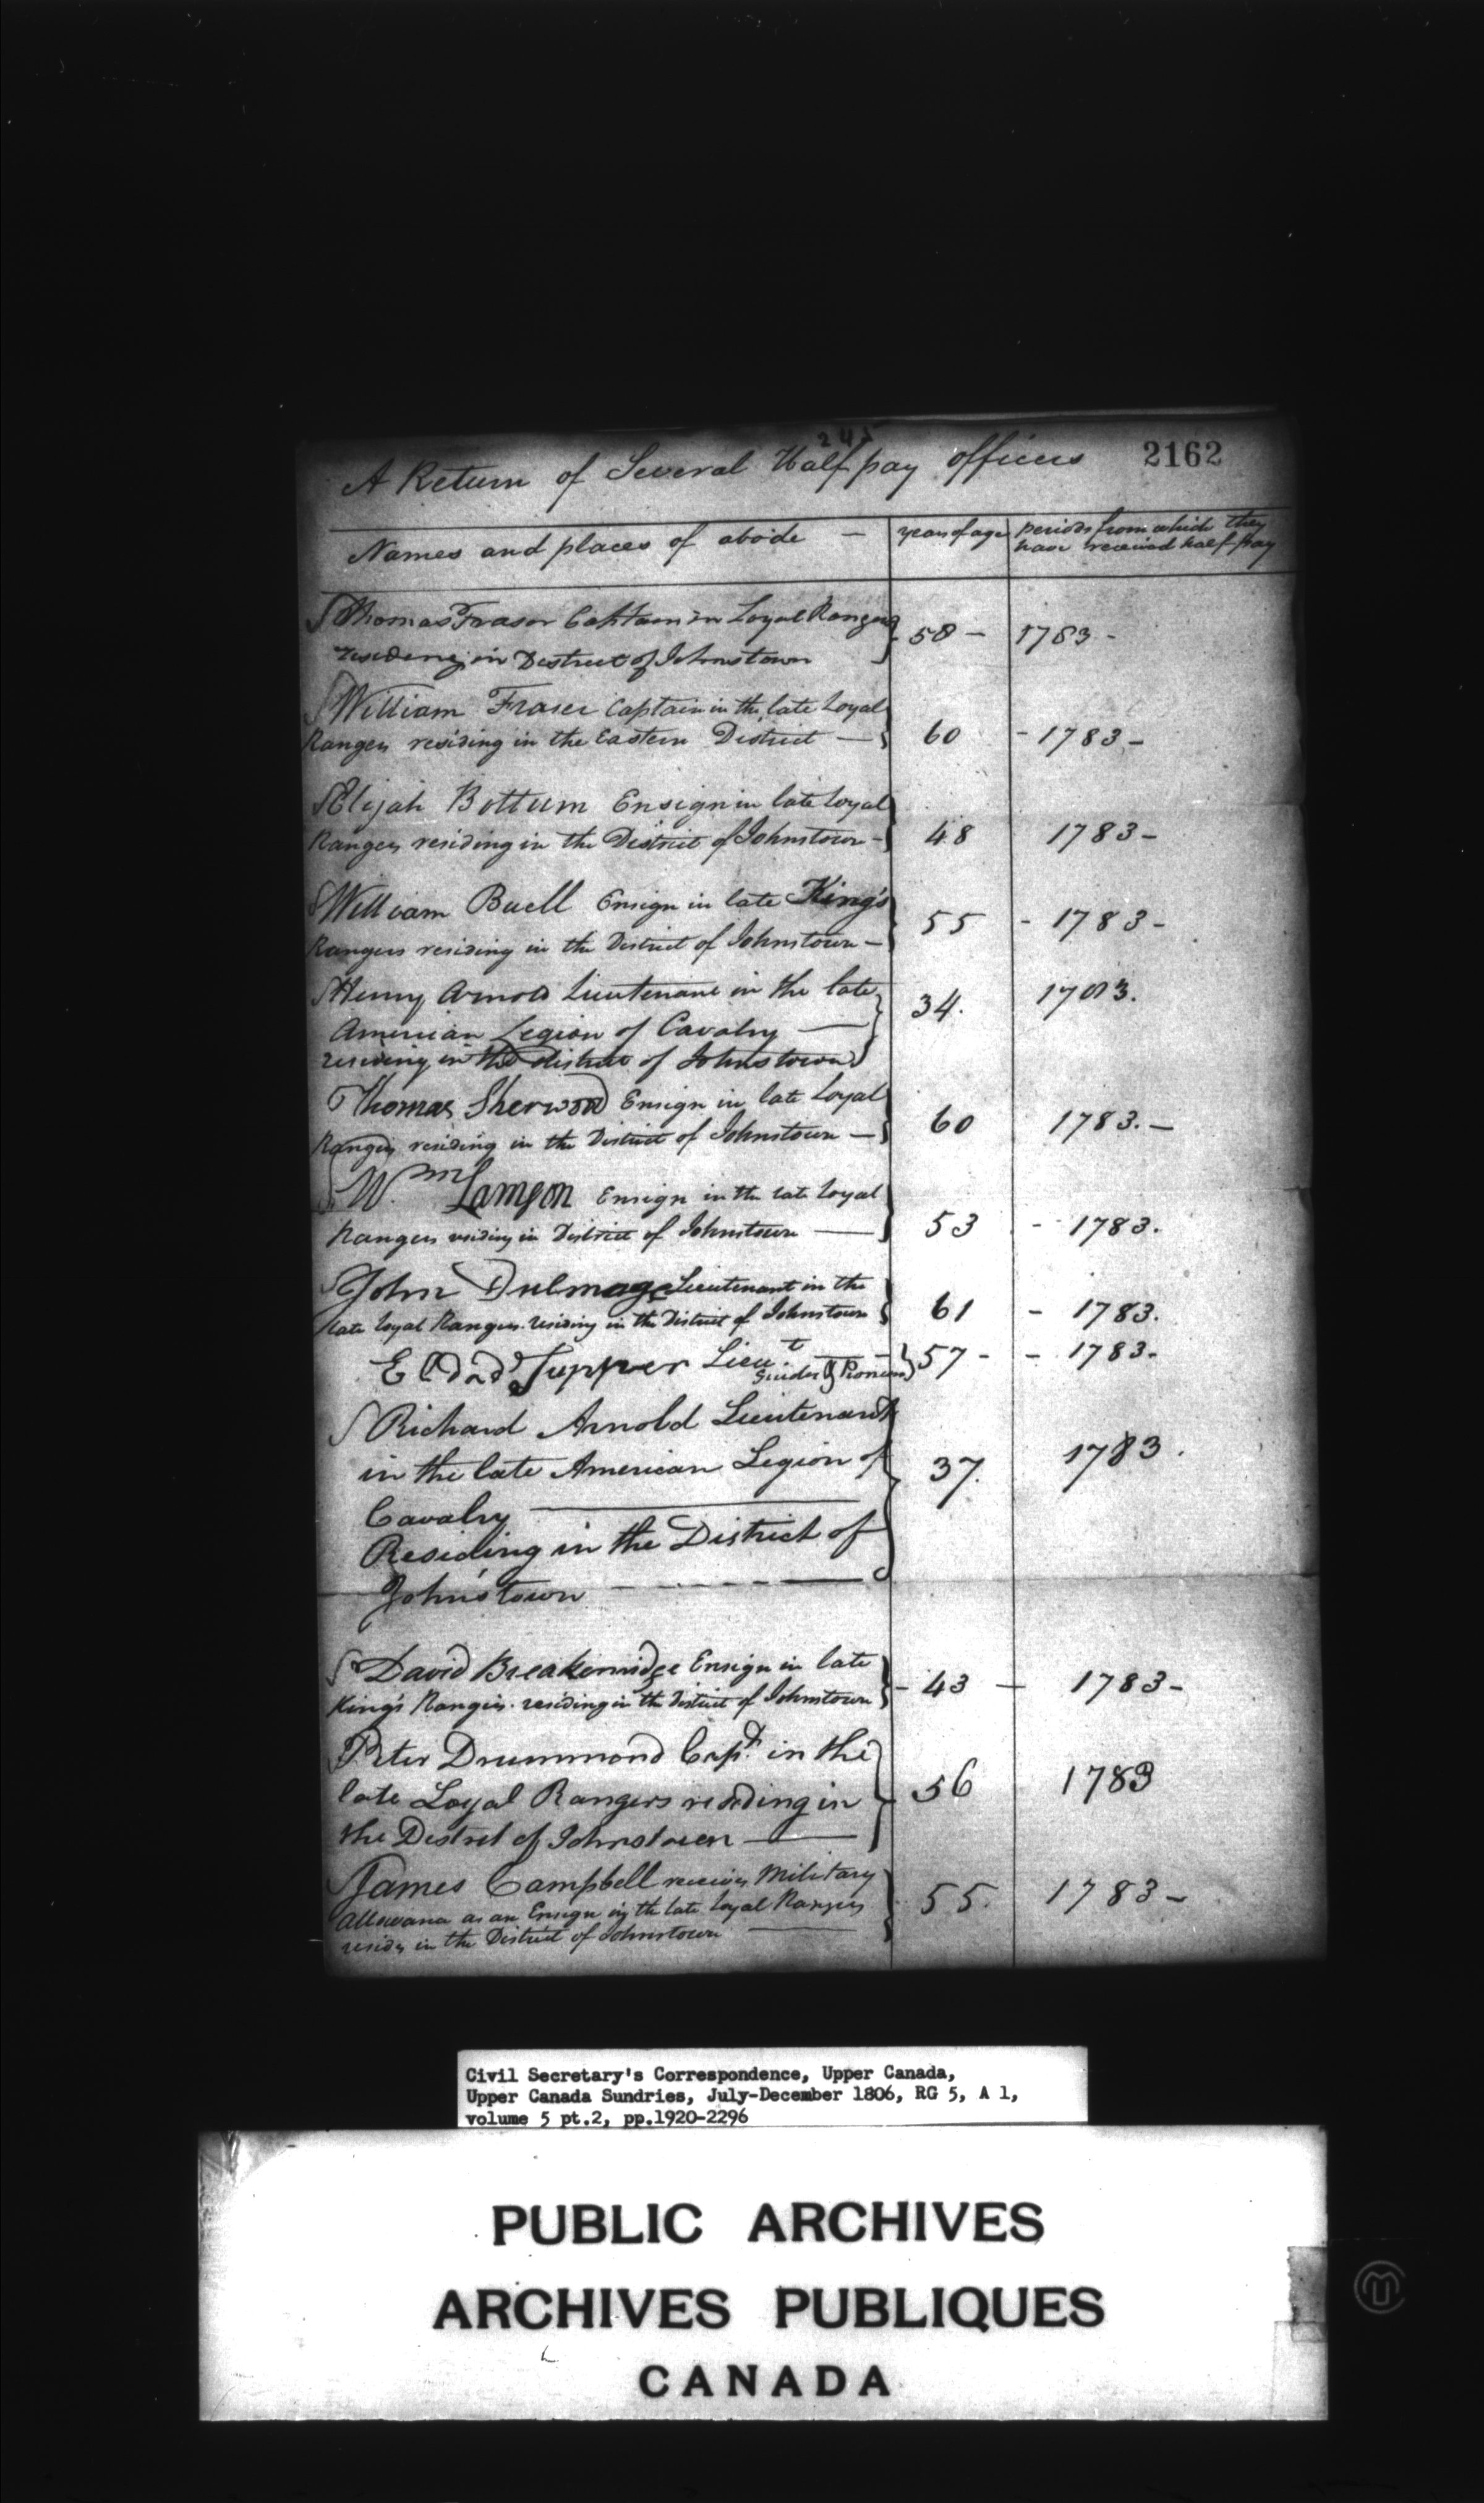 245
2162
A Return of Several Half pay officers
Names and places of abode — years of age periods from which they
have received half pay
Thomas Fraser Captain in Loyal Rangers
residing in District of Johnstown 58 - 1783 -
William Fraser Captain in the late Loyal
Rangers residing in the Eastern District — 60 - 1783 -
Elijah Bottum Ensign in late Loyal
Rangers residing in the District of Johnstown - 48 1783 -
William Buell Ensign in late King's
Rangers residing in the District of Johnstown — 55 - 1783 -
Henry Arnold Lieutenant in the late
American Legion of Cavalry — 34. 1783.
residing in the district of Johnstown
Thomas Sherwood Ensign in late Loyal
Rangers residing in the District of Johnstown — 60 1783. —
Wm Lamson Ensign in the late Loyal
Rangers residing in District of Johnstown — 53 - 1783.
John Dulmage Lieutenant in the
late Loyal Rangers. residing in the District of Johnstown 61 - 1783.
Eldad Tupper Lieut. Guides & Pioneers 57 - - 1783.
Richard Arnold Lieutenant
in the late American Legion of 37. 1783.
Cavalry —
Residing in the District of
Johnstown - - - - —
David Breakenridge Ensign in late
King's Rangers. residing in the District of Johnstown - 43 — 1783 -
Peter Drummond Capt. in the
late Loyal Rangers residing in 56 1783
the District of Johnstown —
James Campbell receives Military
Allowance as an Ensign in the late Loyal Rangers 55. 1783 -
resides in the District of Johnstown —
Civil Secretary's Correspondence, Upper Canada,
Upper Canada Sundries, July-December 1806, RG 5, A 1,
volume 5 pt.2, pp.1920-2296
PUBLIC ARCHIVES
ARCHIVES PUBLIQUES
CANADA